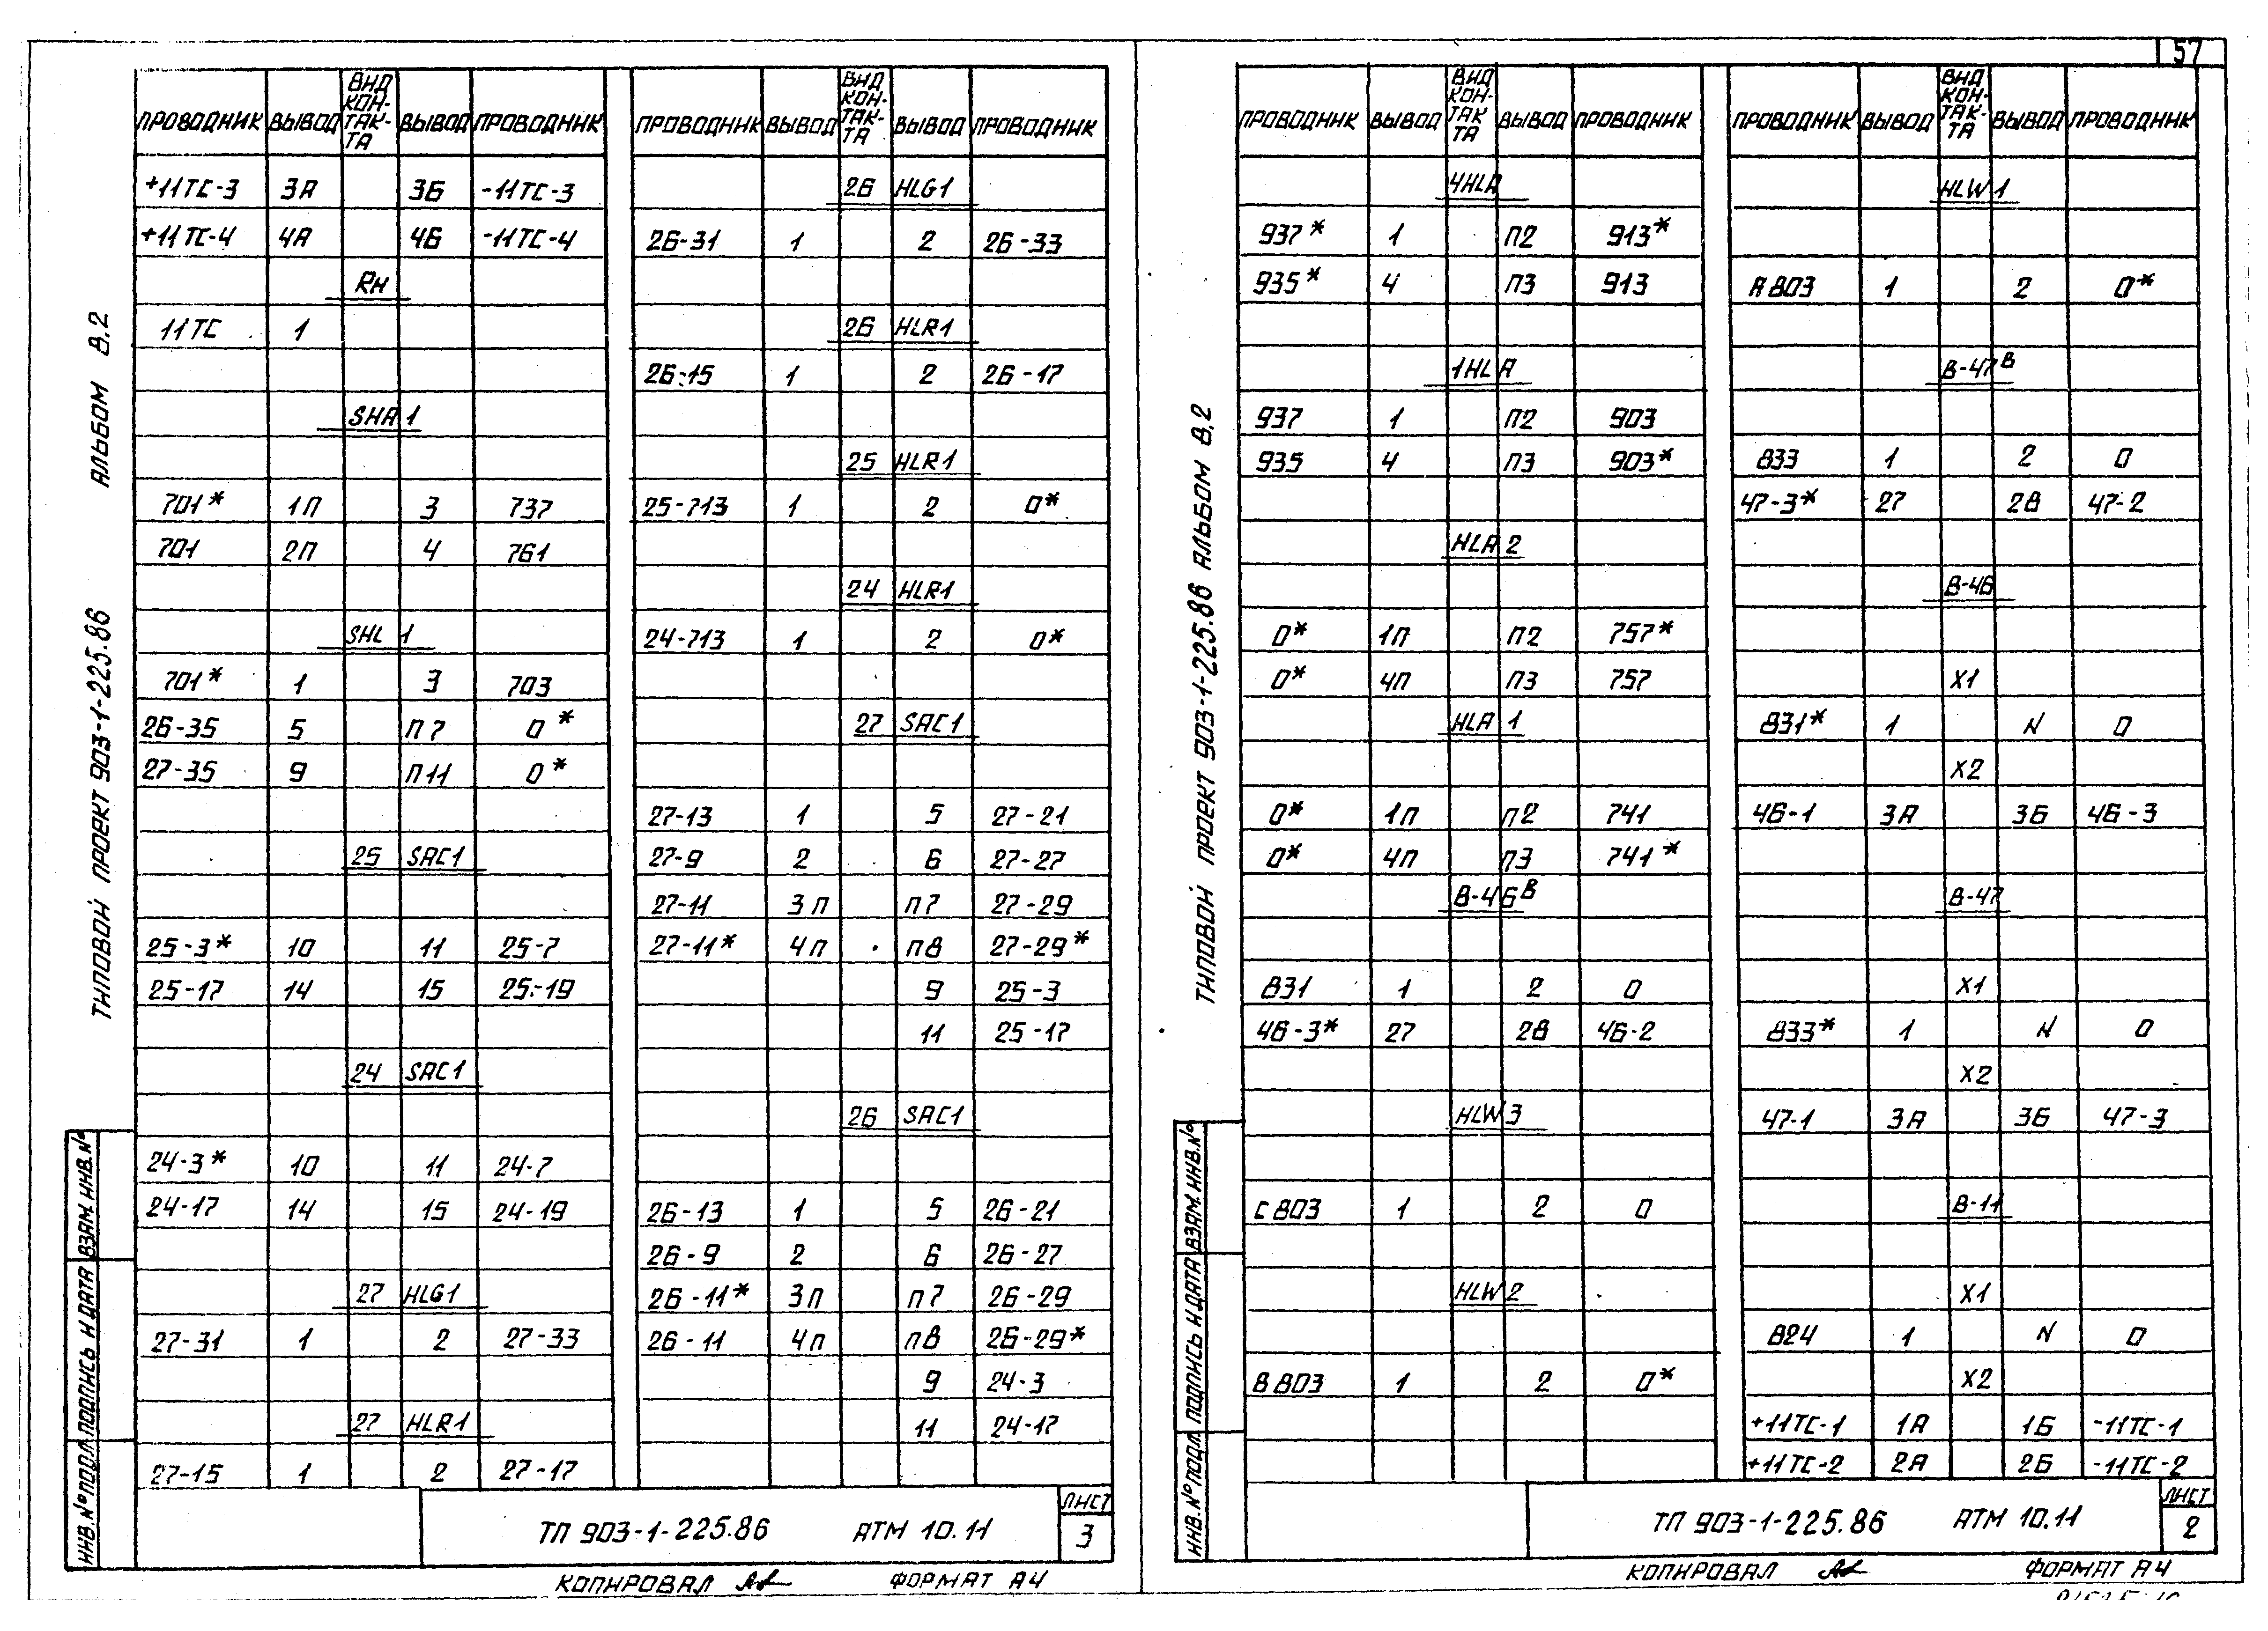 57
ТИПОВОЙ ПРОЕКТ 903-1-225.86 АЛЬБОМ 8.2
ПРОВОДНИК ВЫВОД ВИД КОН-ТАК-ТА ВЫВОД ПРОВОДНИК
+11ТС-3 3А 3Б -11ТС-3
+11ТС-4 4А 4Б -11ТС-4
Rн
11ТС 1
SHA1
701* 1П 3 737
701 2П 4 761
SHL 1
701* 1 3 703
26-35 5 П7 0*
27-35 9 П11 0*
25 SAC1
25-3* 10 11 25-7
25-17 14 15 25-19
24 SAC1
24-3* 10 11 24-7
24-17 14 15 24-19
27 HLG1
27-31 1 2 27-33
27 HLR1
27-15 1 2 27-17
ПРОВОДНИК ВЫВОД ВИД КОН-ТАК-ТА ВЫВОД ПРОВОДНИК
26 HLG1
26-31 1 2 26-33
26 HLR1
26-15 1 2 26-17
25 HLR1
25-713 1 2 0*
24 HLR1
24-713 1 2 0*
27 SAC1
27-13 1 5 27-21
27-9 2 6 27-27
27-11 3П П7 27-29
27-11* 4П П8 27-29*
9 25-3
11 25-17
26 SAC1
26-13 1 5 26-21
26-9 2 6 26-27
26-11* 3П П7 26-29
26-11 4П П8 26-29*
9 24-3
11 24-17
ИНВ.№ПОДЛ. ПОДПИСЬ И ДАТА ВЗАМ. ИНВ.№
ТП 903-1-225.86 АТМ 10.11
ЛИСТ
3
КОПИРОВАЛ ФОРМАТ А4
ТИПОВОЙ ПРОЕКТ 903-1-225.86 АЛЬБОМ 8.2
ПРОВОДНИК ВЫВОД ВИД КОН-ТАК ТА ВЫВОД ПРОВОДНИК
4HLA
937* 1 П2 913*
935* 4 П3 913
1HLA
937 1 П2 903
935 4 П3 903*
HLA 2
0* 1П П2 757*
0* 4П П3 757
HLA 1
0* 1П П2 741
0* 4П П3 741*
В-46В
831 1 2 0
46-3* 27 28 46-2
HLW3
С803 1 2 0
HLW2
В803 1 2 0*
ПРОВОДНИК ВЫВОД ВИД КОН-ТАК-ТА ВЫВОД ПРОВОДНИК
HLW1
А803 1 2 0*
В-47В
833 1 2 0
47-3* 27 28 47-2
В-46
Х1
831* 1 N 0
Х2
46-1 3А 3Б 46-3
В-47
Х1
833* 1 N 0
Х2
47-1 3А 3Б 47-3
В-11
Х1
824 1 N 0
Х2
+11ТС-1 1А 1Б -11ТС-1
+11ТС-2 2А 2Б -11ТС-2
ИНВ.№ПОДЛ. ПОДПИСЬ И ДАТА ВЗАМ. ИНВ.№
ТП 903-1-225.86 АТМ 10.11
ЛИСТ
2
КОПИРОВАЛ ФОРМАТ А4